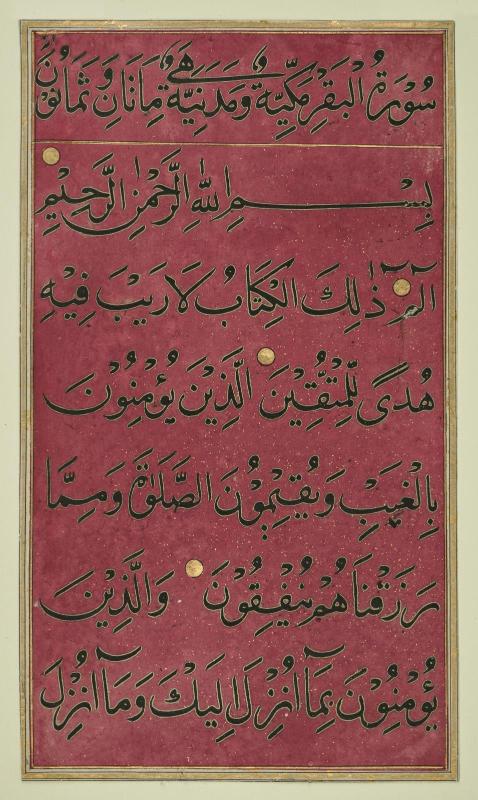 سُورَةُ الْبَقَرِ مَكِّيَّةٌ وَمَدَنِيَّةٌ وَهِيَ مِائَتَانِ وَثَمَانُونَ
بِسْمِ اللَّهِ الرَّحْمٰنِ الرَّحِيمِ
الٓمٓ ذٰلِكَ الْكِتَابُ لَا رَيْبَ فِيْهِ
هُدًى لِّلْمُتَّقِيْنَ الَّذِيْنَ يُؤْمِنُوْنَ
بِالْغَيْبِ وَيُقِيْمُوْنَ الصَّلَوٰةَ وَمِمَّا
رَزَقْنَاهُمْ يُنْفِقُوْنَ وَالَّذِيْنَ
يُؤْمِنُوْنَ بِمَآ اُنْزِلَ اِلَيْكَ وَمَآ اُنْزِلَ